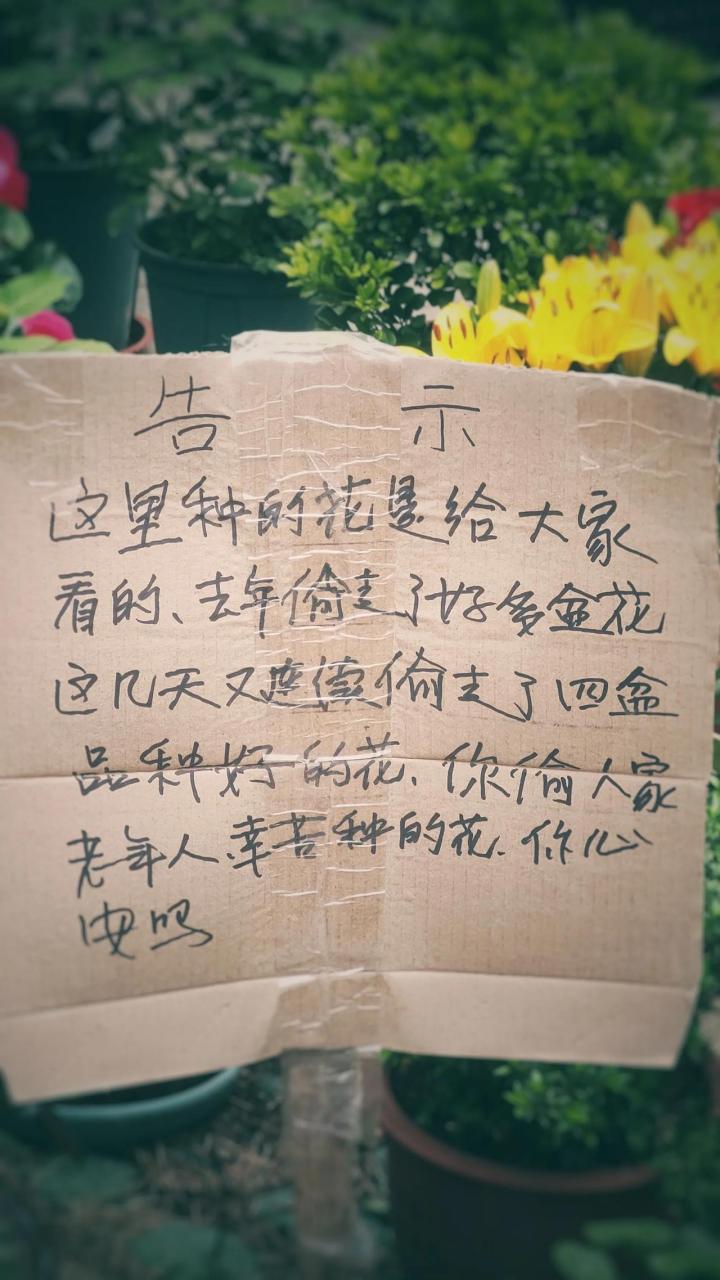 告示
这里种的花是给大家
看的、去年偷走了好多盆花
这几天又连续偷走了四盆
品种好的花、你偷人家
老年人辛苦种的花、你心
安吗